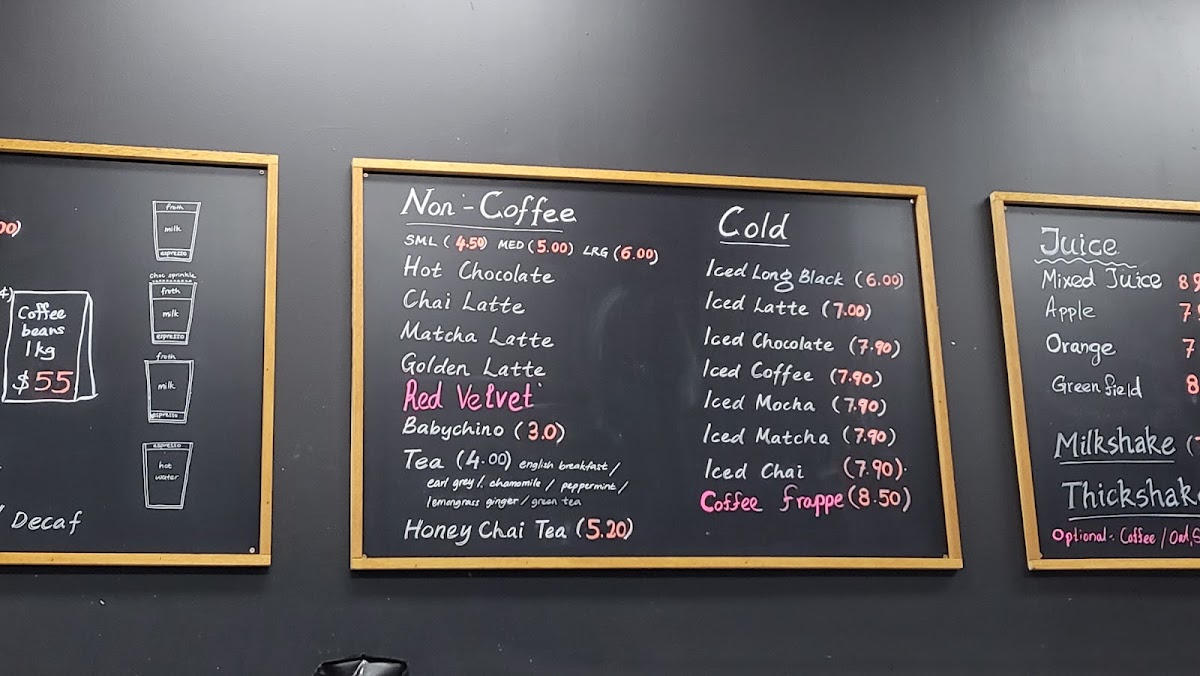 froth
milk
espresso
choc sprinkle
froth
milk
espresso
froth
milk
espresso
espresso
hot
water
Coffee
beans
1kg
$55
/ Decaf
Non-Coffee
SML (4.50) MED (5.00) LRG (6.00)
Hot Chocolate
Chai Latte
Matcha Latte
Golden Latte
Red Velvet
Babychino (3.0)
Tea (4.00) english breakfast /
earl grey /. chamomile / peppermint /
lemongrass ginger / green tea
Honey Chai Tea (5.20)
Cold
Iced Long Black (6.00)
Iced Latte (7.00)
Iced Chocolate (7.90)
Iced Coffee (7.90)
Iced Mocha (7.90)
Iced Matcha (7.90)
Iced Chai (7.90)
Coffee frappe (8.50)
Juice
Mixed Juice
Apple
Orange
Green field
Milkshake
Thickshake
Optional- Coffee /